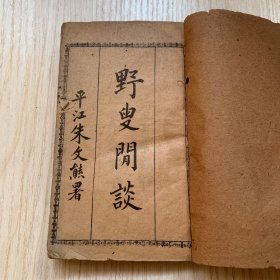 野叟閒談
平江朱文熊署